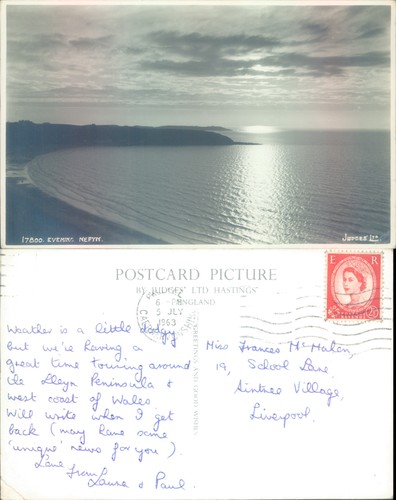 17888. EVENING. NEFYN.
JUDGES' LTD
POSTCARD PICTURE
BY JUDGES' LTD HASTINGS
ENGLAND
E R
6 - PM
5 JLY
1963
Weather is a little dodgy
but we're having a
great time touring around
the Lleyn Peninsula &
west coast of Wales
Will write when I get
back (may have some
'unique' news for you).
Love from
Laura & Paul.
Miss Frances McMahen,
19, School Lane,
Aintree Village,
Liverpool.